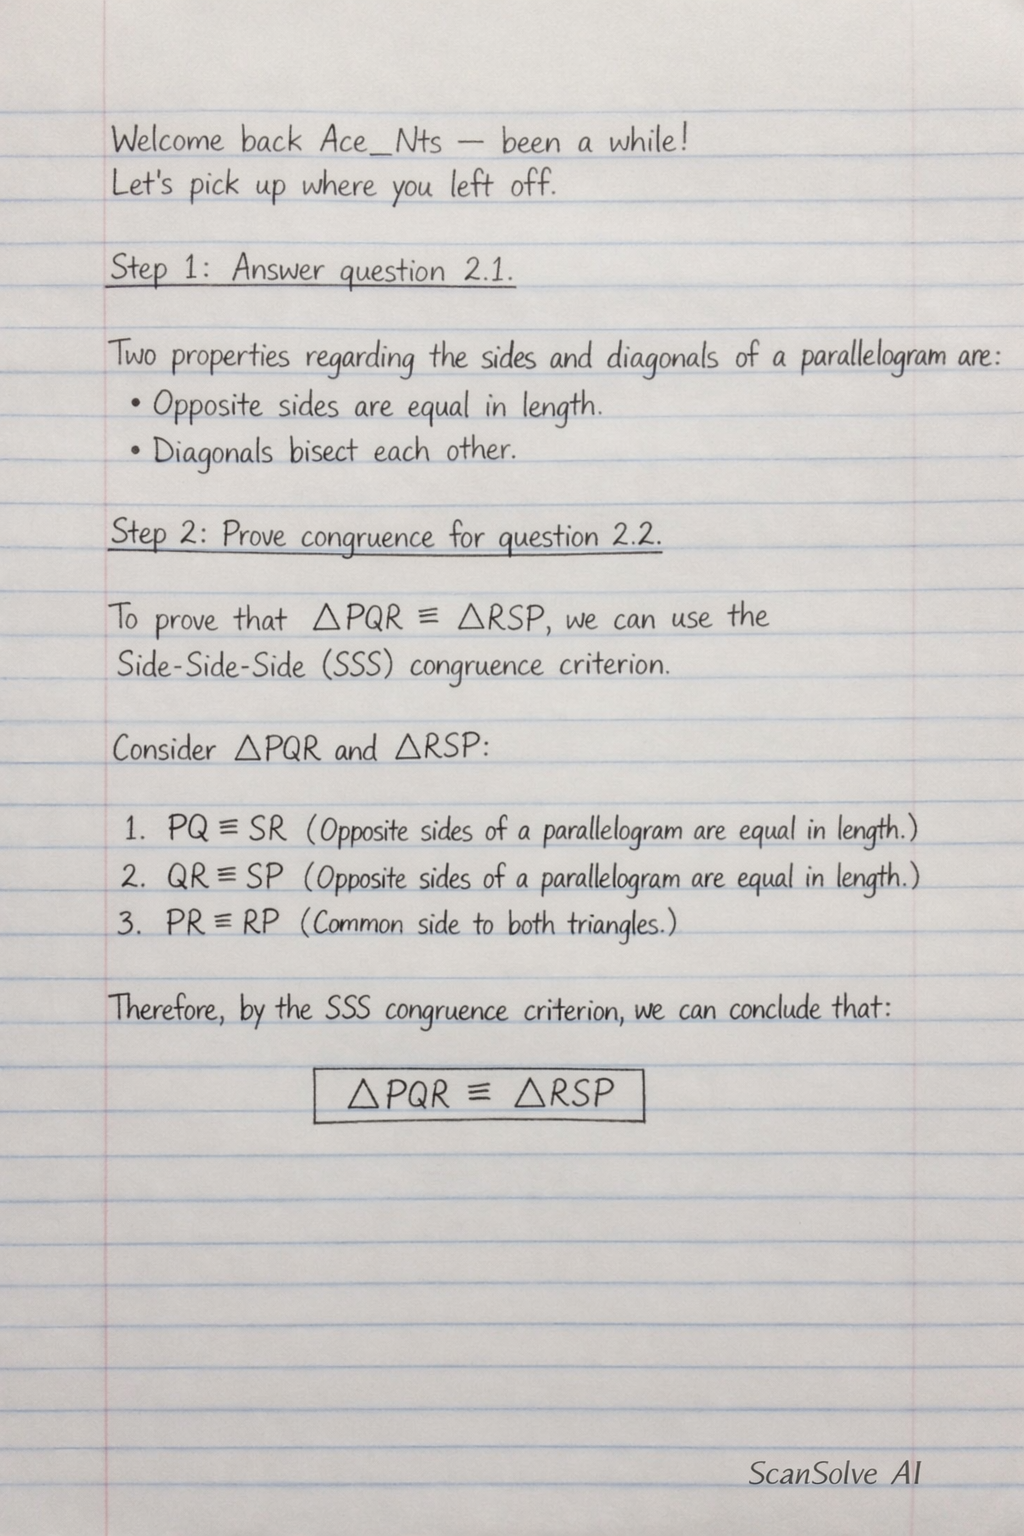 Welcome back Ace_Nts — been a while!
Let's pick up where you left off.
Step 1: Answer question 2.1.
Two properties regarding the sides and diagonals of a parallelogram are:
• Opposite sides are equal in length.
• Diagonals bisect each other.
Step 2: Prove congruence for question 2.2.
To prove that △PQR ≡ △RSP, we can use the
Side-Side-Side (SSS) congruence criterion.
Consider △PQR and △RSP:
1. PQ ≡ SR (Opposite sides of a parallelogram are equal in length.)
2. QR ≡ SP (Opposite sides of a parallelogram are equal in length.)
3. PR ≡ RP (Common side to both triangles.)
Therefore, by the SSS congruence criterion, we can conclude that:
△PQR ≡ △RSP
ScanSolve AI